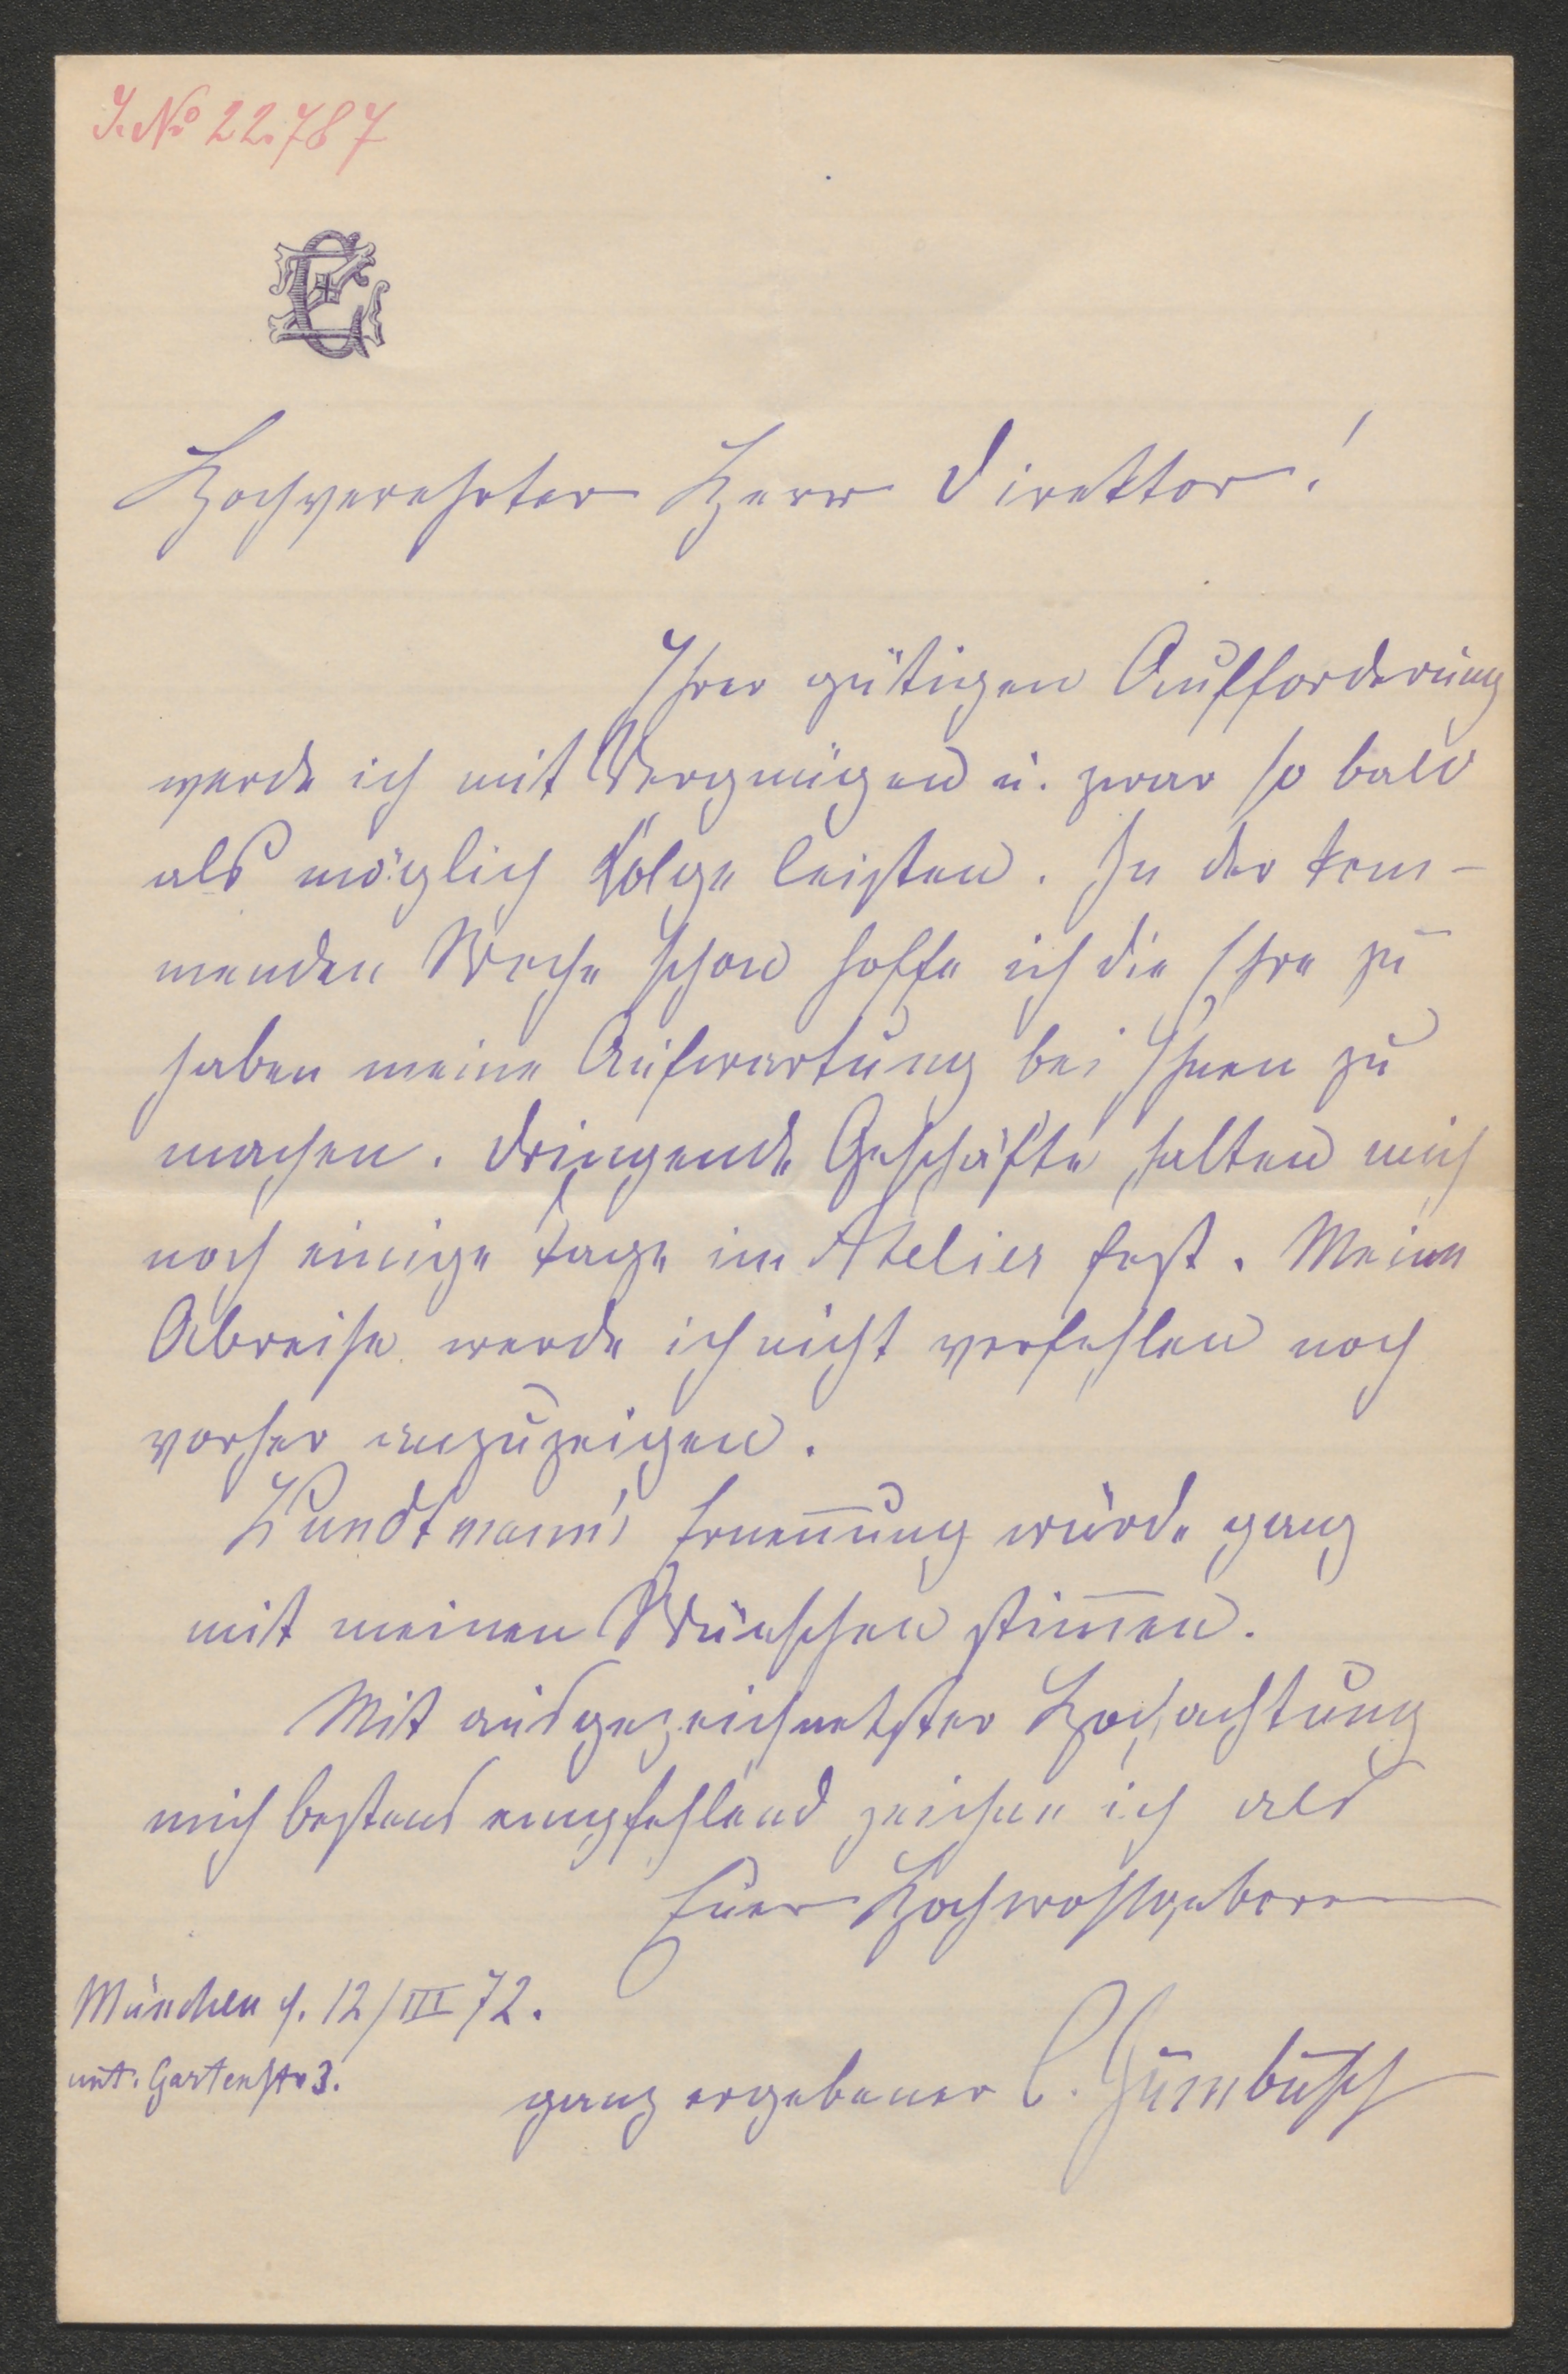 J. No 22.787
Hochverehrter Herr Direktor!
Ihrer gütigen Aufforderung
werde ich mit Vergnügen u. zwar so bald
als möglich Folge leisten. In der kom-
menden Woche schon hoffe ich die Ehre zu
haben meine Aufwartung bei Ihnen zu
machen. Dringende Geschäfte halten mich
noch einige Tage im Atelier fest. Meine
Abreise werde ich nicht verfehlen noch
vorher anzuzeigen.
Kundtmann's Ernen̄ung würde ganz
mit meinen Wünschen stim̄en.
Mit ausgezeichnetster Hochachtung
mich bestens empfehlend zeichne ich als
Euer Hochwohlgeboren
München d. 12/III 72.
unt. Gartenstr 3.
ganz ergebener C. Zumbusch